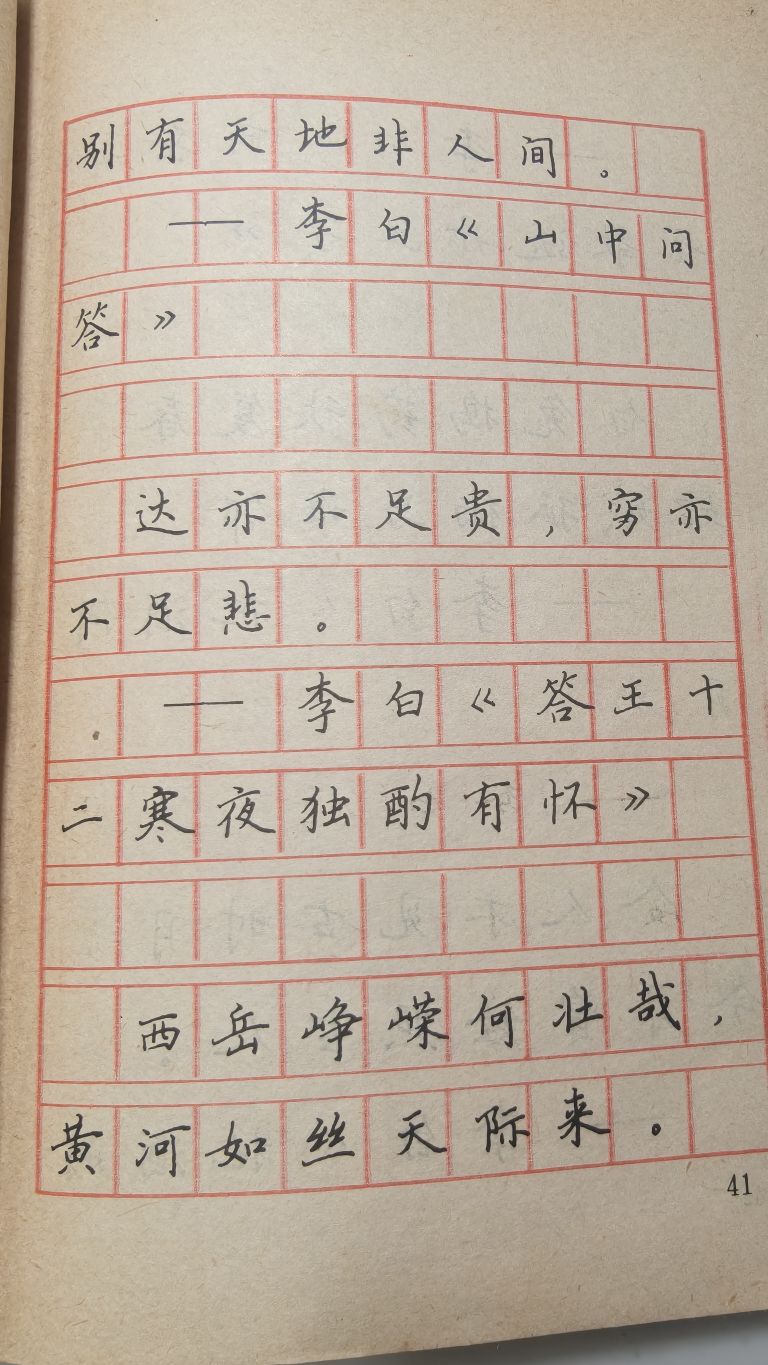 别有天地非人间。
——李白《山中问
答》
达亦不足贵，穷亦
不足悲。
——李白《答王十
二寒夜独酌有怀》
西岳峥嵘何壮哉，
黄河如丝天际来。
41